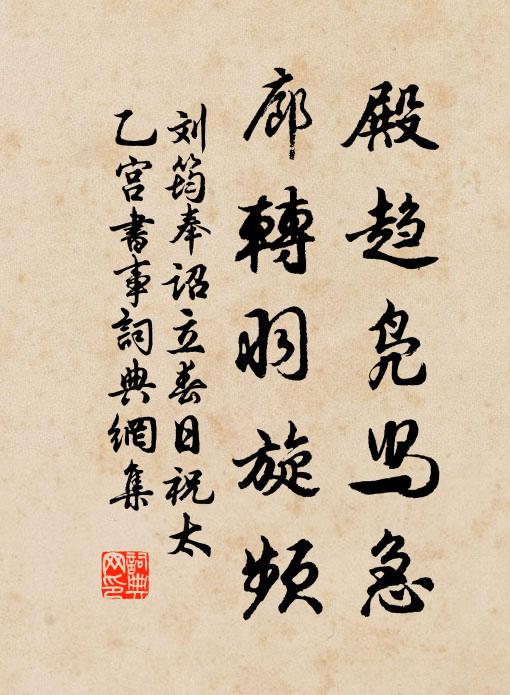 殿趋凫舄急
廊轉羽旋頻
刘筠奉诏立春日祝太
乙宫書事詞典網集
詞典网印